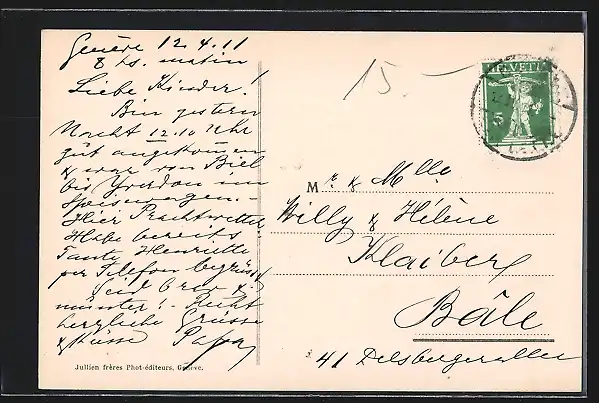 Genève 12.4.11
8 hs. matin
Liebe Kinder!
Bin gestern
Nacht 12.10 Uhr
gut angekommen
& war von Biel
bis Yverdon im
Speisewagen. -
Hier Prachtwetter
Habe bereits
Tante Henriette
per Telefon begrüsst
Seid brav &
munter! - Recht
herzliche Grüsse
& Küsse Papa
Jullien frères Phot-éditeurs, Genève.
15.-
HELVETIA
5
Mr. & Mlle
Willy & Hélène
Klaiber
Bâle
41 Delsbergerallee